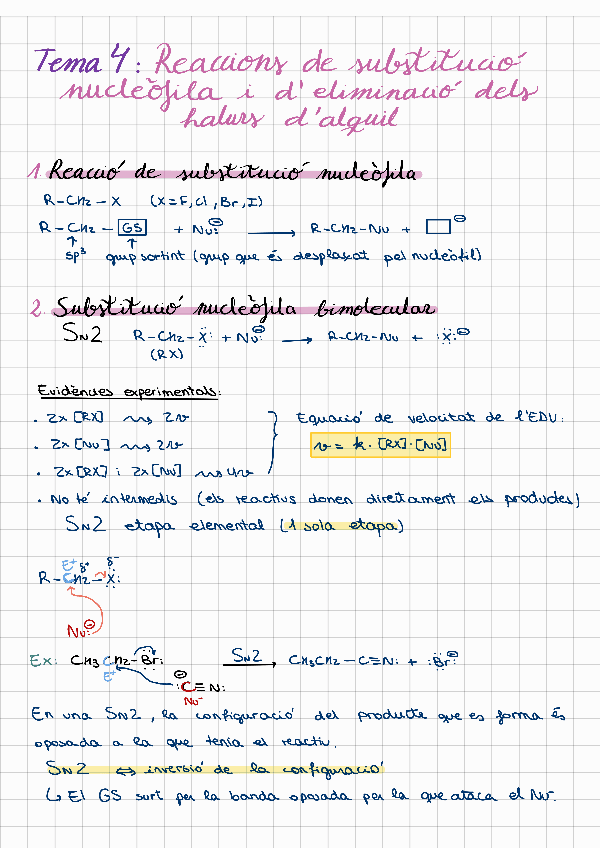 Tema 4: Reaccions de substitució
nucleòfila i d'eliminació dels
halurs d'alquil
1. Reacció de substitució nucleòfila
R-CH2-X (X=F, Cl, Br, I)
R-CH2-GS + Nu:⊖ → R-CH2-Nu + □⊖
↑ sp³ ↑ grup sortint (grup que és desplaçat pel nucleòfil)
2. Substitució nucleòfila bimolecular
SN2 R-CH2-X: + Nu:⊖ → R-CH2-Nu + :X:⊖
(RX)
Evidències experimentals:
· 2x [RX] ⇝ 2v
· 2x [Nu] ⇝ 2v
· 2x [RX] i 2x [Nu] ⇝ 4v
Equació de velocitat de l'EDV:
v = k · [RX] · [Nu]
· No té intermedis (els reactius donen directament els productes)
SN2 etapa elemental (1 sola etapa)
E⁺ δ⁺ δ⁻
R-CH2-X:
Nu:⊖
Ex: CH3CH2-Br: SN2 → CH3CH2-C≡N: + :Br:⊖
E⁺ ⊖:C≡N:
Nu⁻
En una SN2, la configuració del producte que es forma és
oposada a la que tenia el reactiu.
SN2 ⇔ inversió de la configuració
↳ El GS surt per la banda oposada per la que ataca el Nu⁻.